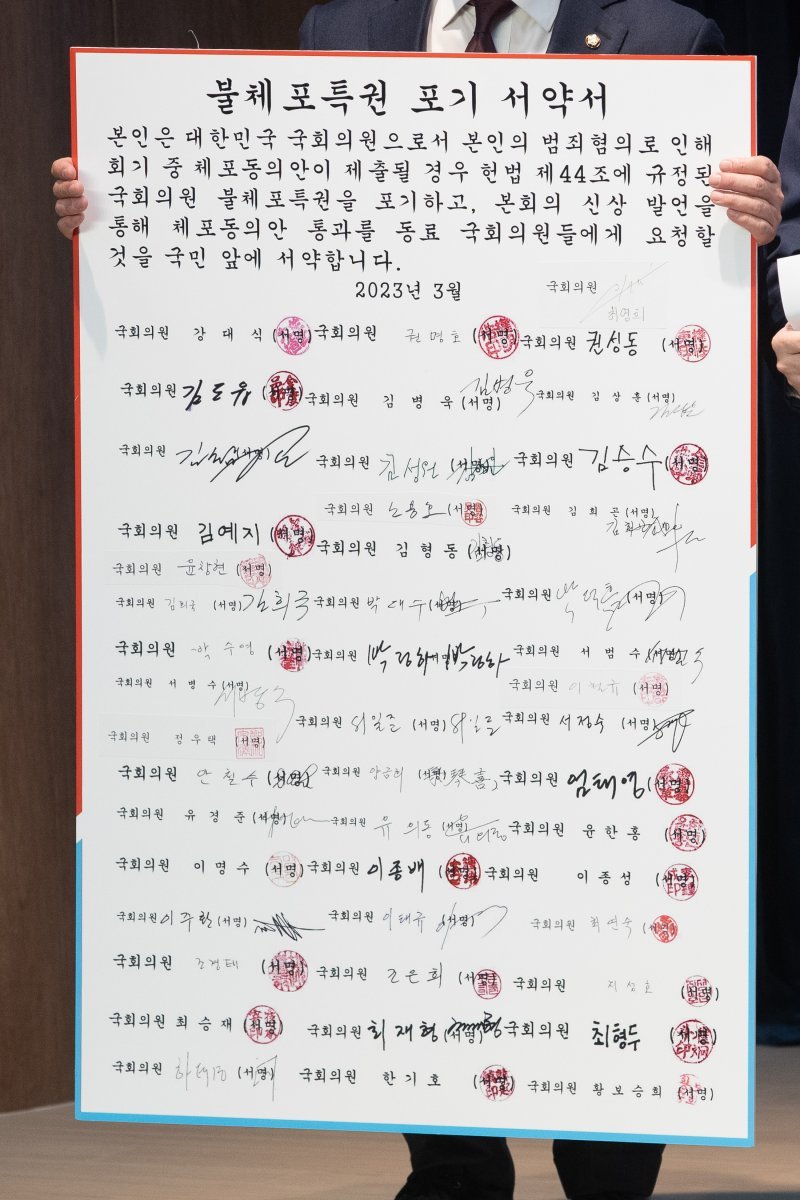 불체포특권 포기 서약서
본인은 대한민국 국회의원으로서 본인의 범죄혐의로 인해
회기 중 체포동의안이 제출될 경우 헌법 제44조에 규정된
국회의원 불체포특권을 포기하고, 본회의 신상 발언을
통해 체포동의안 통과를 동료 국회의원들에게 요청할
것을 국민 앞에 서약합니다.
2023년 3월
국회의원
국회의원 강대식 (서명) 국회의원 권명호 (서명) 국회의원 권성동 (서명)
국회의원 김도읍 (서명) 국회의원 김병욱 (서명) 김병욱 국회의원 김상훈 (서명)
국회의원 국회의원 김성원 (서명) 국회의원 김승수 (서명)
국회의원 노용호 (서명) 국회의원 김희곤 (서명)
국회의원 김예지 (서명) 국회의원 김형동 (서명)
국회의원 윤창현 (서명)
국회의원 김희국 (서명) 김희국 국회의원 박대수 (서명) 국회의원 박덕흠 (서명)
국회의원 박수영 (서명) 국회의원 박정하 (서명) 박정하 국회의원 서범수 (서명)
국회의원 서병수 (서명) 국회의원 이철규 (서명)
국회의원 정우택 (서명) 국회의원 서일준 (서명) 서일준 국회의원 서정숙 (서명)
국회의원 안철수 (서명) 국회의원 양금희 (서명) 국회의원 엄태영 (서명)
국회의원 유경준 (서명) 국회의원 유의동 (서명) 국회의원 윤한홍 (서명)
국회의원 이명수 (서명) 국회의원 이종배 (서명) 국회의원 이종성 (서명)
국회의원 이주환 (서명) 국회의원 이태규 (서명) 국회의원 최연숙 (서명)
국회의원 조경태 (서명) 국회의원 조은희 (서명) 국회의원 지성호 (서명)
국회의원 최승재 (서명) 국회의원 최재형 (서명) 국회의원 최형두 (서명)
국회의원 하태경 (서명) 국회의원 한기호 (서명) 국회의원 황보승희 (서명)